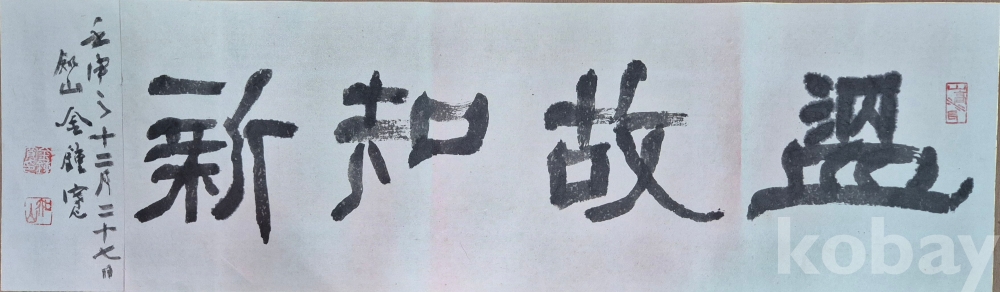 溫故知新
壬申之十二月二十七日
山金鍾寬
kobay